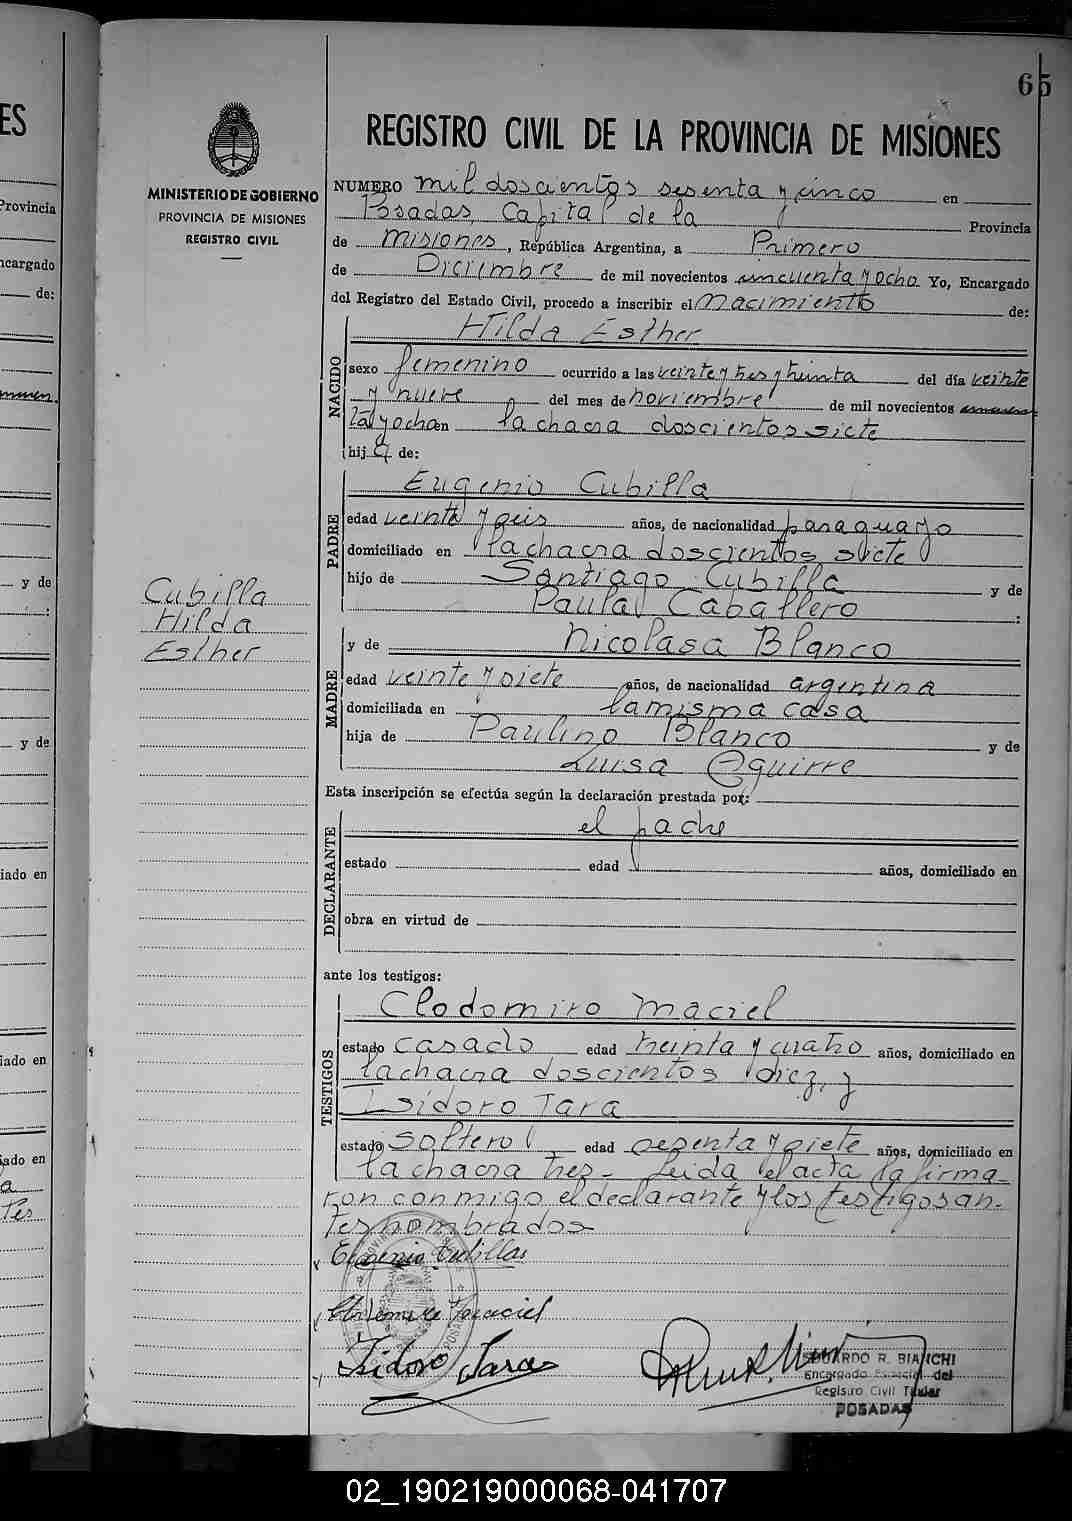 65
ES
REGISTRO CIVIL DE LA PROVINCIA DE MISIONES
MINISTERIO DE GOBIERNO
PROVINCIA DE MISIONES
REGISTRO CIVIL
NUMERO mil doscientos sesenta y cinco en
Posadas, Capital de la Provincia
de Misiones, República Argentina, a Primero
de Diciembre de mil novecientos cincuenta y ocho Yo, Encargado
del Registro del Estado Civil, procedo a inscribir el nacimiento de:
NACIDO
Hilda Esther
sexo femenino ocurrido a las veinte y tres y treinta del día veinte
y nueve del mes de noviembre de mil novecientos
ta y ocho en la chacra doscientos siete
hija de:
PADRE
Eugenio Cubilla
edad veinte y seis años, de nacionalidad paraguayo
domiciliado en la chacra doscientos siete
hijo de Santiago Cubilla y de
Paula Caballero :
Cubilla
Hilda
Esther
MADRE
y de Nicolasa Blanco
edad veinte y siete años, de nacionalidad argentina
domiciliada en la misma casa
hija de Paulino Blanco y de
Luisa Aguirre
Esta inscripción se efectúa según la declaración prestada por:
DECLARANTE
el padre
estado edad años, domiciliado en
obra en virtud de
ante los testigos:
TESTIGOS
Clodomiro Maciel
estado casado edad treinta y cuatro años, domiciliado en
la chacra doscientos diez, y
Isidoro Tara
estado soltero edad sesenta y siete años, domiciliado en
la chacra tres- Leida el acta la firma-
ron conmigo el declarante y los testigos an-
tes nombrados-
Eugenio Cubillas
Clodomiro Maciel
Isidoro Tara
EDUARDO R. BIANCHI
Encargado Especial del
Registro Civil Titular
POSADAS
Provincia
ncargado
de:
y de
:
y de
iado en
iado en
iado en
02_190219000068-041707